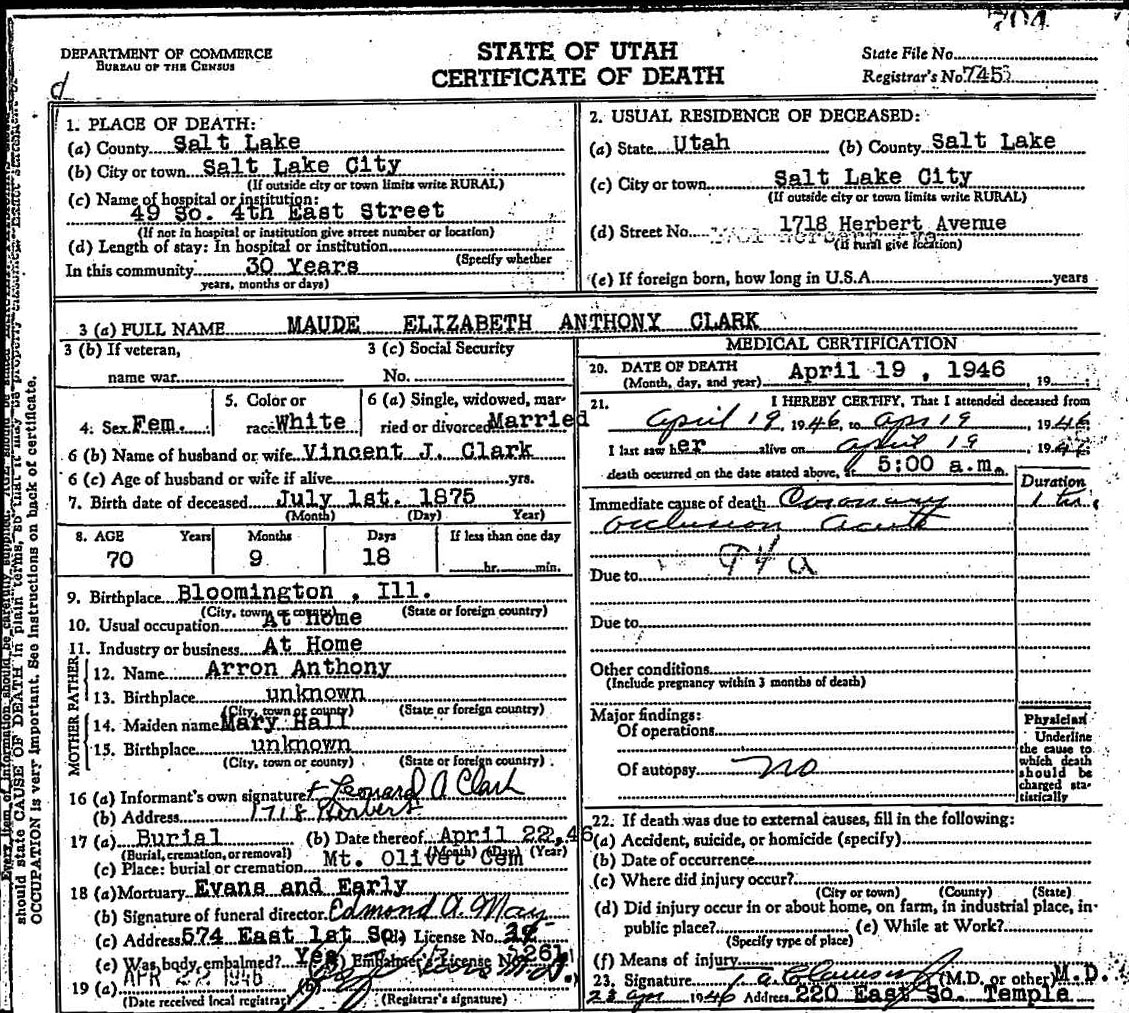 704
DEPARTMENT OF COMMERCE
BUREAU OF THE CENSUS
STATE OF UTAH
CERTIFICATE OF DEATH
State File No.
Registrar's No. 7453
1. PLACE OF DEATH:
(a) County Salt Lake
(b) City or town Salt Lake City
(If outside city or town limits write RURAL)
(c) Name of hospital or institution:
49 So. 4th East Street
(If not in hospital or institution give street number or location)
(d) Length of stay: In hospital or institution
(Specify whether
In this community 30 Years
years, months or days)
2. USUAL RESIDENCE OF DECEASED:
(a) State Utah (b) County Salt Lake
(c) City or town Salt Lake City
(If outside city or town limits write RURAL)
(d) Street No. 1718 Herbert Avenue
(If rural give location)
(e) If foreign born, how long in U.S.A. years
3 (a) FULL NAME MAUDE ELIZABETH ANTHONY CLARK
3 (b) If veteran, 3 (c) Social Security
name war No.
4. Sex Fem.
5. Color or
race White
6 (a) Single, widowed, mar-
ried or divorced Married
6 (b) Name of husband or wife Vincent J. Clark
6 (c) Age of husband or wife if alive yrs.
7. Birth date of deceased July 1st. 1875
(Month) (Day) Year)
8. AGE Years Months Days If less than one day
70 9 18 hr. min.
9. Birthplace Bloomington , Ill.
(City, town or county) (State or foreign country)
10. Usual occupation At Home
11. Industry or business At Home
FATHER
12. Name Arron Anthony
13. Birthplace unknown
(City, town or county) (State or foreign country)
MOTHER
14. Maiden name Mary Hall
15. Birthplace unknown
(City, town or county) (State or foreign country)
16 (a) Informant's own signature Leonard A Clark
(b) Address 1718 Herbert
17 (a) Burial (b) Date thereof April 22, 46
(Burial, cremation, or removal) (Month) (Day) (Year)
(c) Place: burial or cremation Mt. Olivet Cem
18 (a) Mortuary Evans and Early
(b) Signature of funeral director Edmond A. May
(c) Address 574 East 1st So. (d) License No.
(e) Was body embalmed? Yes (f) Embalmer's License No. 261
19 (a) APR 22 1946 (b)
(Date received local registrar) (Registrar's signature)
MEDICAL CERTIFICATION
20. DATE OF DEATH April 19 , 1946
(Month, day, and year) , 19
21. I HEREBY CERTIFY, That I attended deceased from
April 19, 1946, to Apr 19, 1946
I last saw her alive on April 19, 1946
death occurred on the date stated above, at 5:00 a.m.
Duration
Immediate cause of death Coronary
occlusion acute
94 a
Due to
Due to
Other conditions
(Include pregnancy within 3 months of death)
Major findings:
Of operations
Of autopsy no
Physician
Underline
the cause to
which death
should be
charged sta-
tistically
22. If death was due to external causes, fill in the following:
(a) Accident, suicide, or homicide (specify)
(b) Date of occurrence
(c) Where did injury occur?
(City or town) (County) (State)
(d) Did injury occur in or about home, on farm, in industrial place, in
public place? (e) While at Work?
(Specify type of place)
(f) Means of injury
23. Signature (M.D. or other) M.D.
23 Apr 1946 Address 220 East So. Temple
should state CAUSE OF DEATH in plain terms, so that it may be properly
OCCUPATION is very important. See instructions on back of certificate.